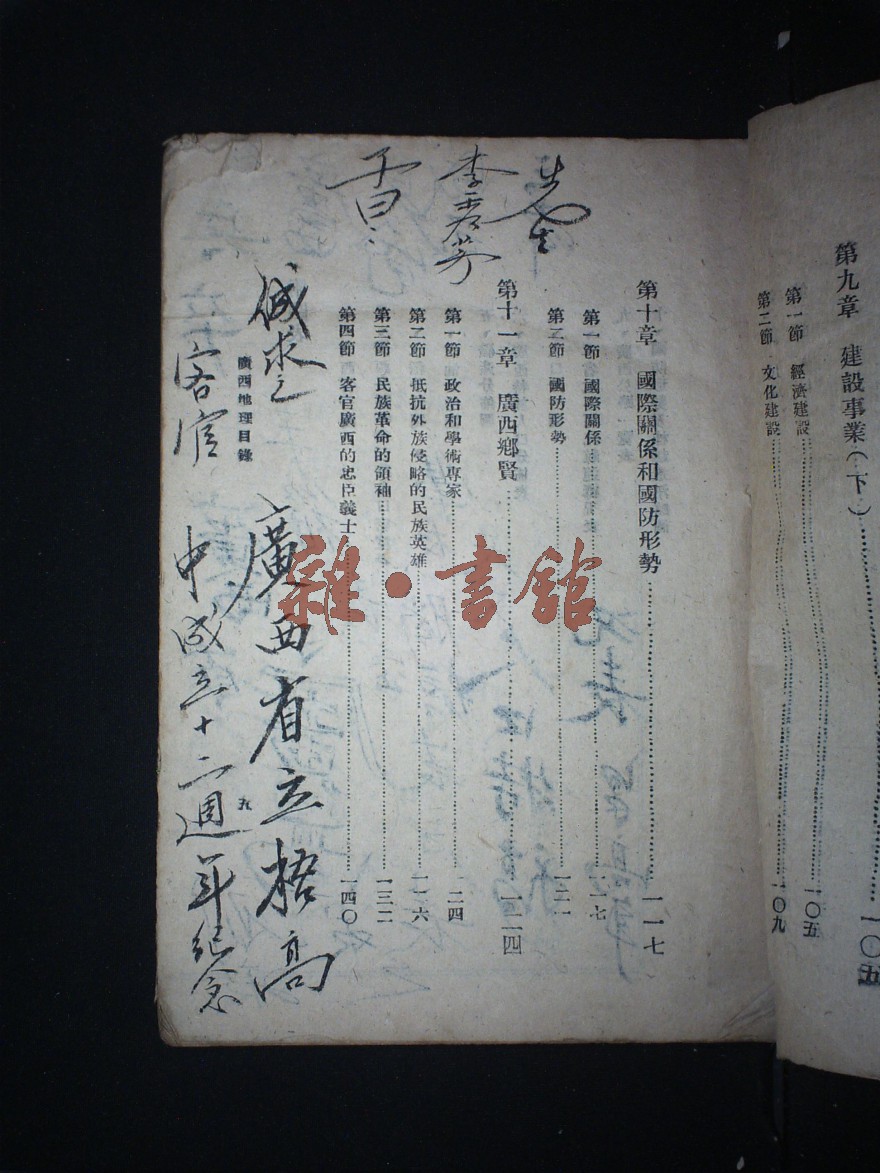 第九章 建設事業(下)……一〇五
第一節 經濟建設……一〇五
第二節 文化建設……一〇九
先生
李
第十章 國際關係和國防形勢……一一七
第一節 國際關係……一一七
第二節 國防形勢……一二一
第十一章 廣西鄉賢……一二四
第一節 政治和學術專家……一二四
第二節 抵抗外族侵略的民族英雄……一二六
第三節 民族革命的領袖……一三二
第四節 客官廣西的忠臣義士……一四〇
廣西地理目錄 五
廣西省立梧高
客官
中成立十二週年紀念
雜·書館